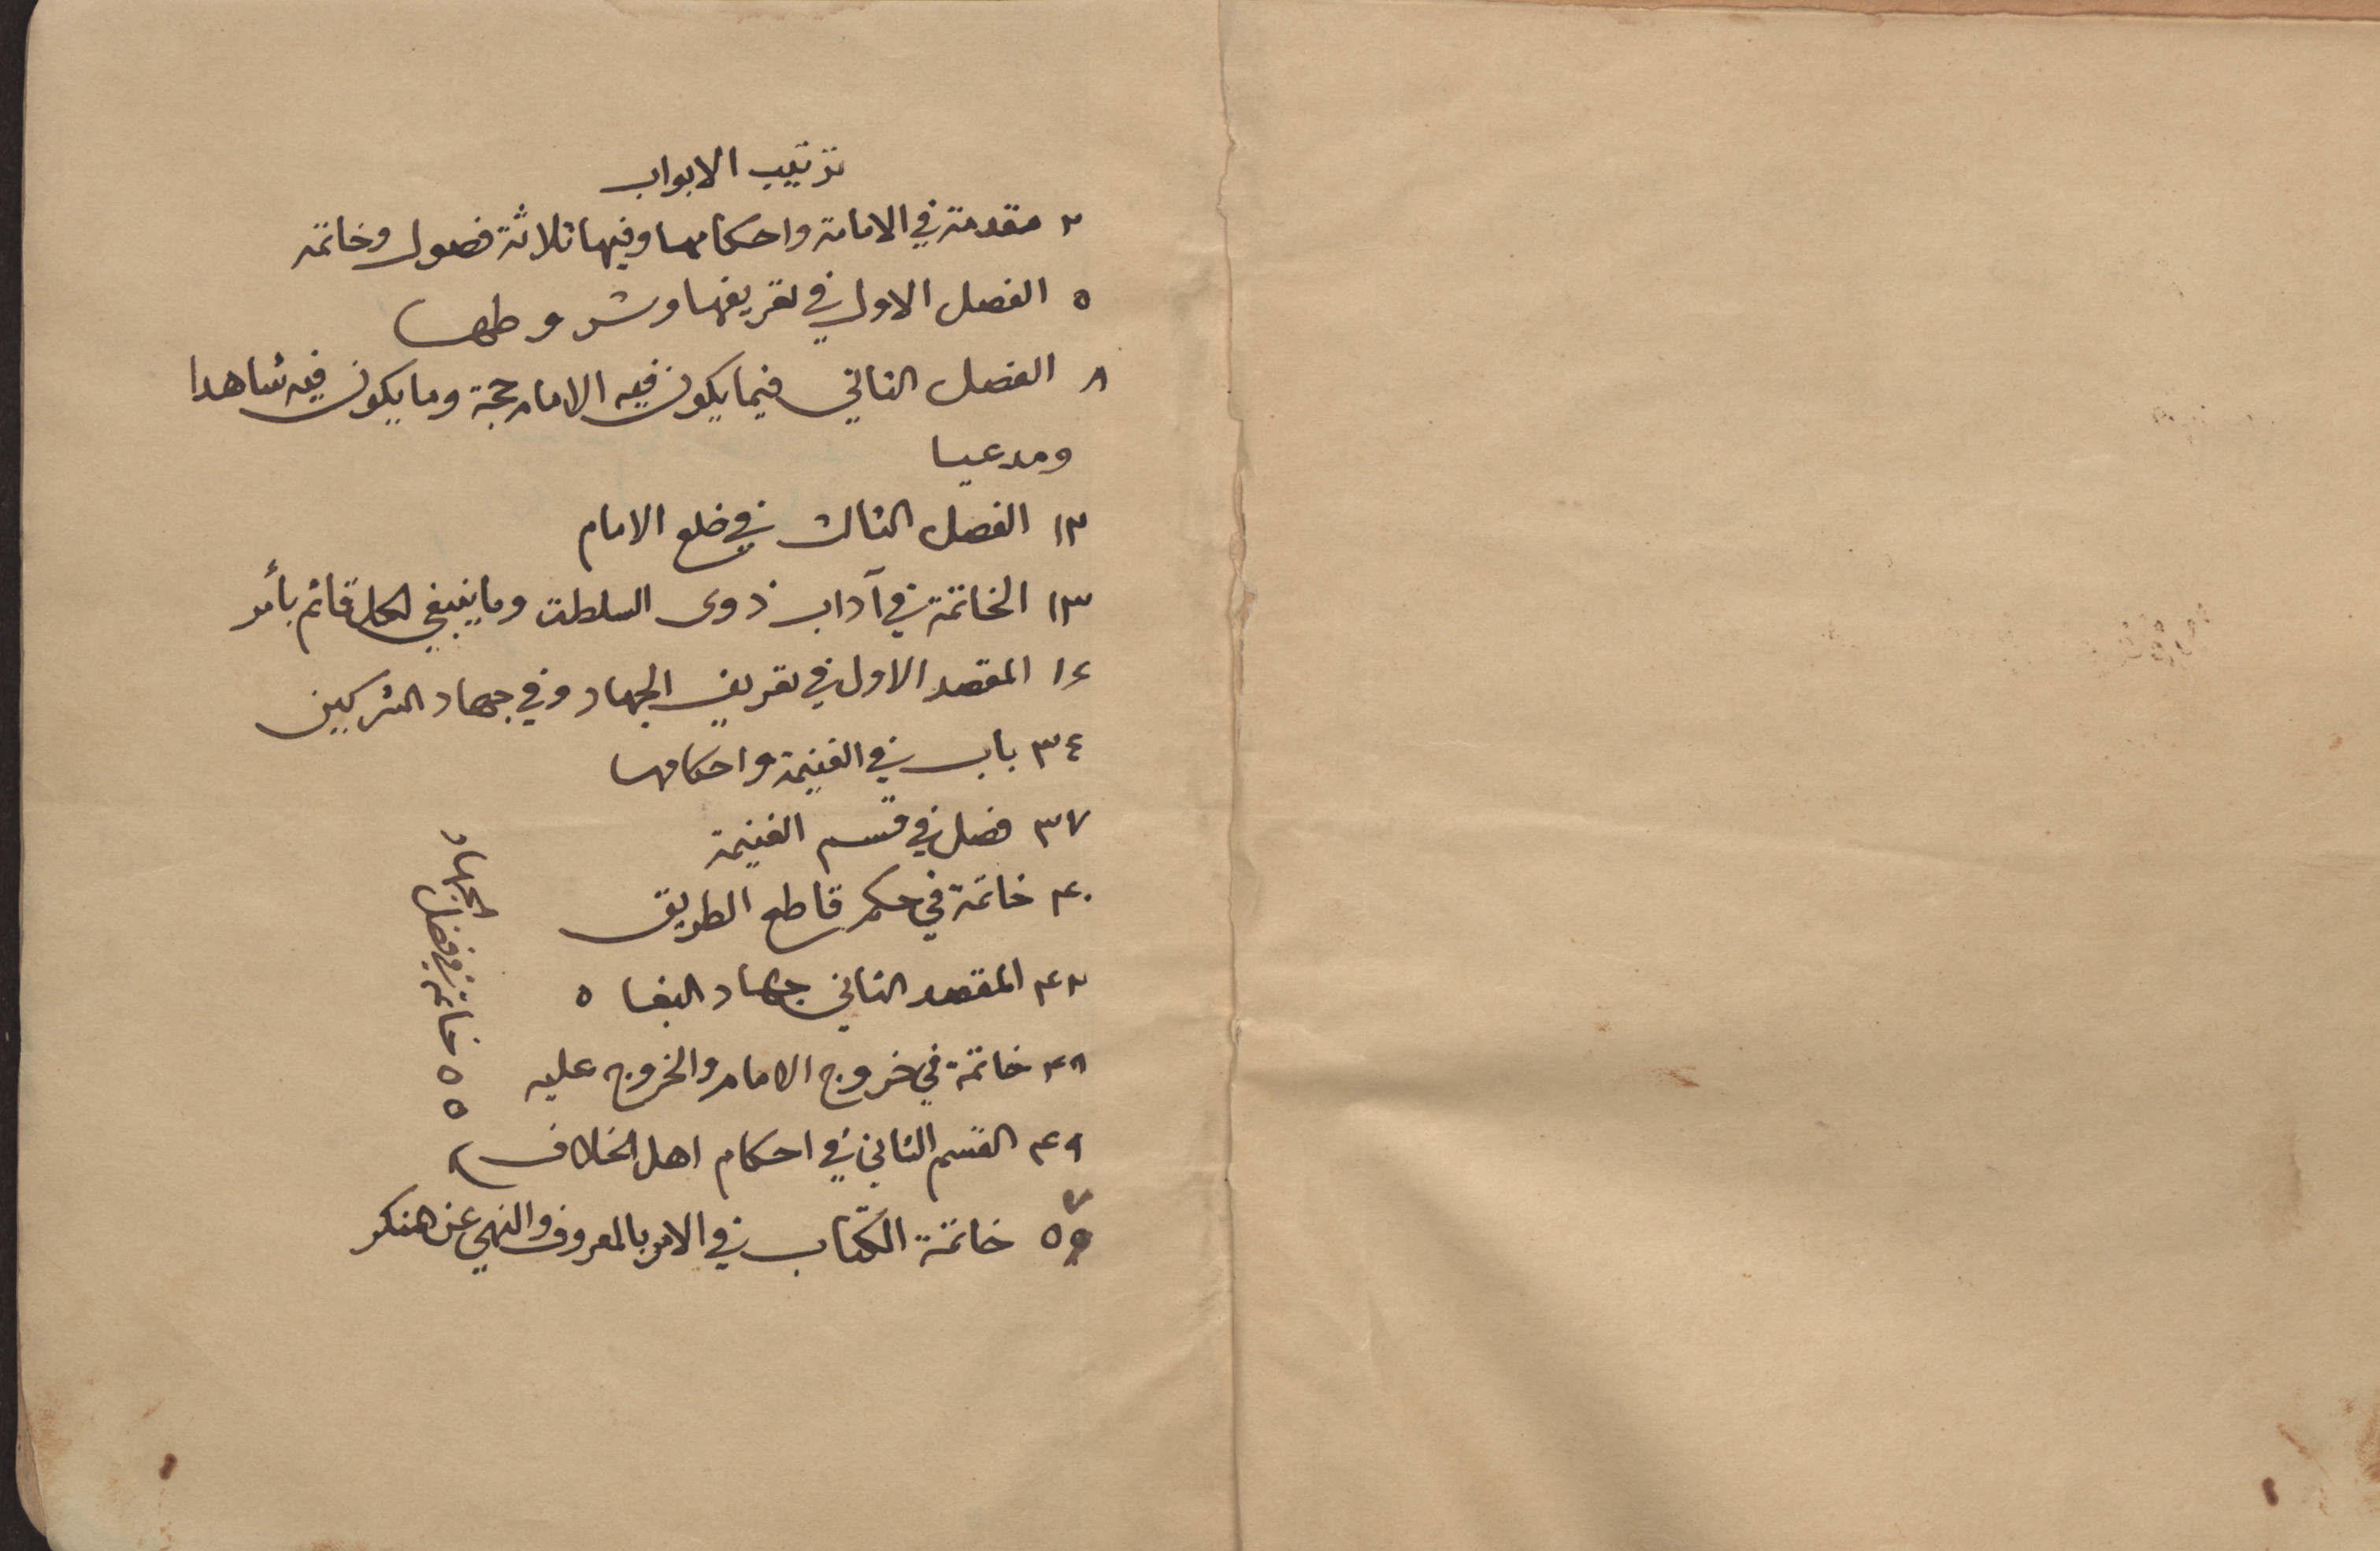 ترتيب الابواب
٢ مقدمة في الامامة واحكامها وفيها ثلاثة فصول وخاتمة
٥ الفصل الاول في تعريفها وشروطها
٨ الفصل الثاني فيما يكون فيه الامام حجة وما يكون فيه شاهدا
ومدعيا
١٢ الفصل الثالث في خلع الامام
١٣ الخاتمة في آداب ذوى السلطة وما ينبغي لكل قائم بأمر
١٤ المقصد الاول في تعريف الجهاد وفي جهاد المشركين
٣٤ باب في الغنيمة واحكامها
٣٧ فصل في قسم الغنيمة
٤٠ خاتمة في حكم قاطع الطريق
٤٢ المقصد الثاني جهاد البغاه
٤٨ خاتمة في خروج الامام والخروج عليه
٤٩ القسم الثاني في احكام اهل الخلاف
٥٧ خاتمة الكتاب في الامر بالمعروف والنهي عن منكر
٥٥ خاتمة في فضل الجهاد